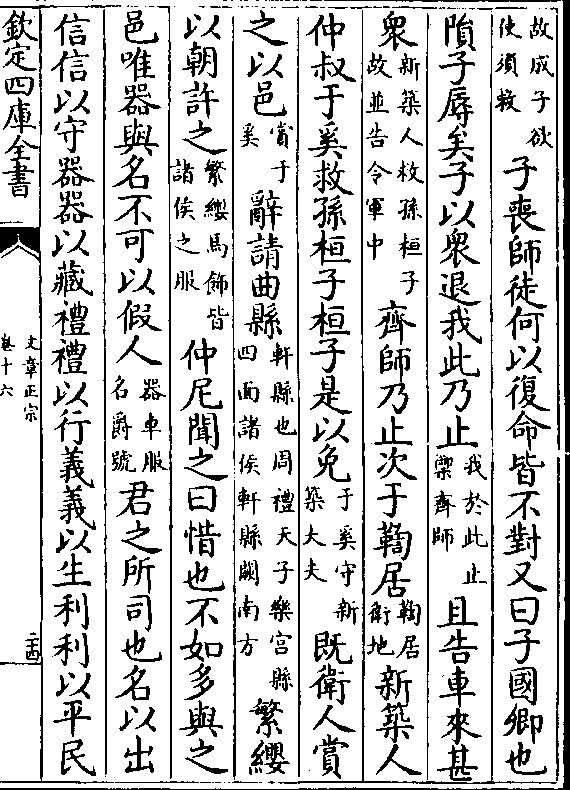 故成子欲使須救子喪師徒何以復命皆不對又曰子國卿也
隕子辱矣子以衆退我此乃止我於此止禦齊師且告車來甚
衆新築人救孫桓子故並告令軍中齊師乃止次于鞫居鞫居衛地新築人
仲叔于奚救孫桓子桓子是以免于奚守新築大夫既衛人賞
之以邑賞于奚辭請曲縣軒縣也周禮天子樂宫縣四面諸侯軒縣闕南方繁纓
以朝許之繁纓馬飾皆諸侯之服仲尼聞之曰惜也不如多與之
邑唯器與名不可以假人器車服名爵號君之所司也名以出
信信以守器器以藏禮禮以行義義以生利利以平民
欽定四庫全書
文章正宗
卷十六
二十四